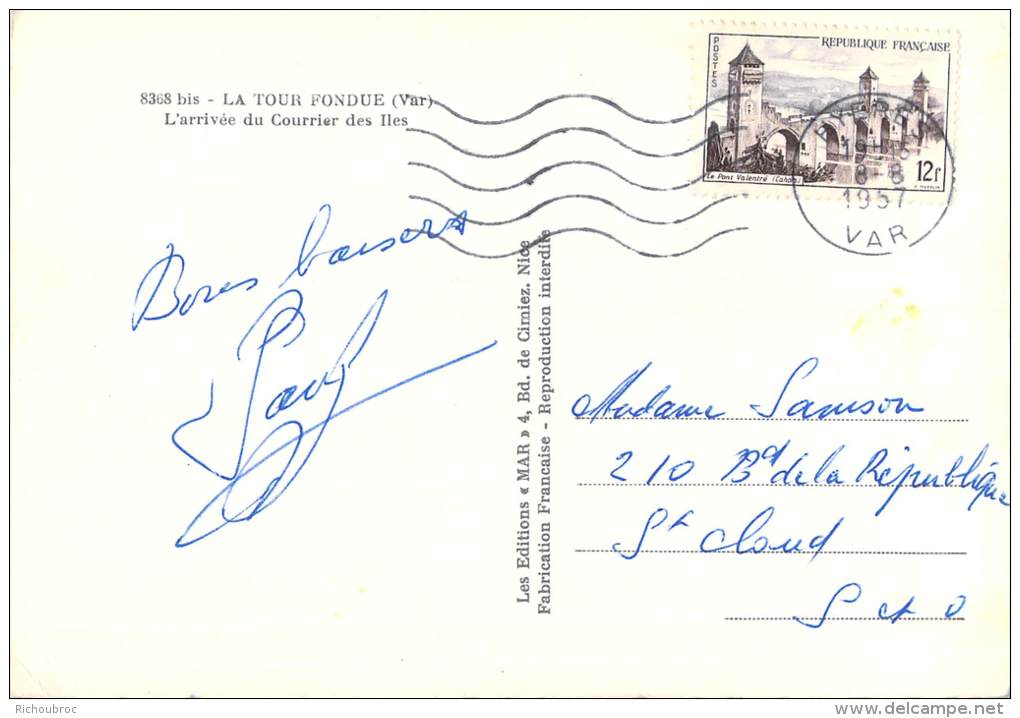 8368 bis - LA TOUR FONDUE (Var)
L'arrivée du Courrier des Iles
POSTES
REPUBLIQUE FRANÇAISE
Le Pont Valentré (Cahors)
12f
8-8
1957
VAR
Bons baisers
Paul
Les Editions « MAR » 4, Bd. de Cimiez. Nice
Fabrication Française - Reproduction interdite
Madame Samson
210 Bd de la République
St Cloud
S et O
Richoubroc